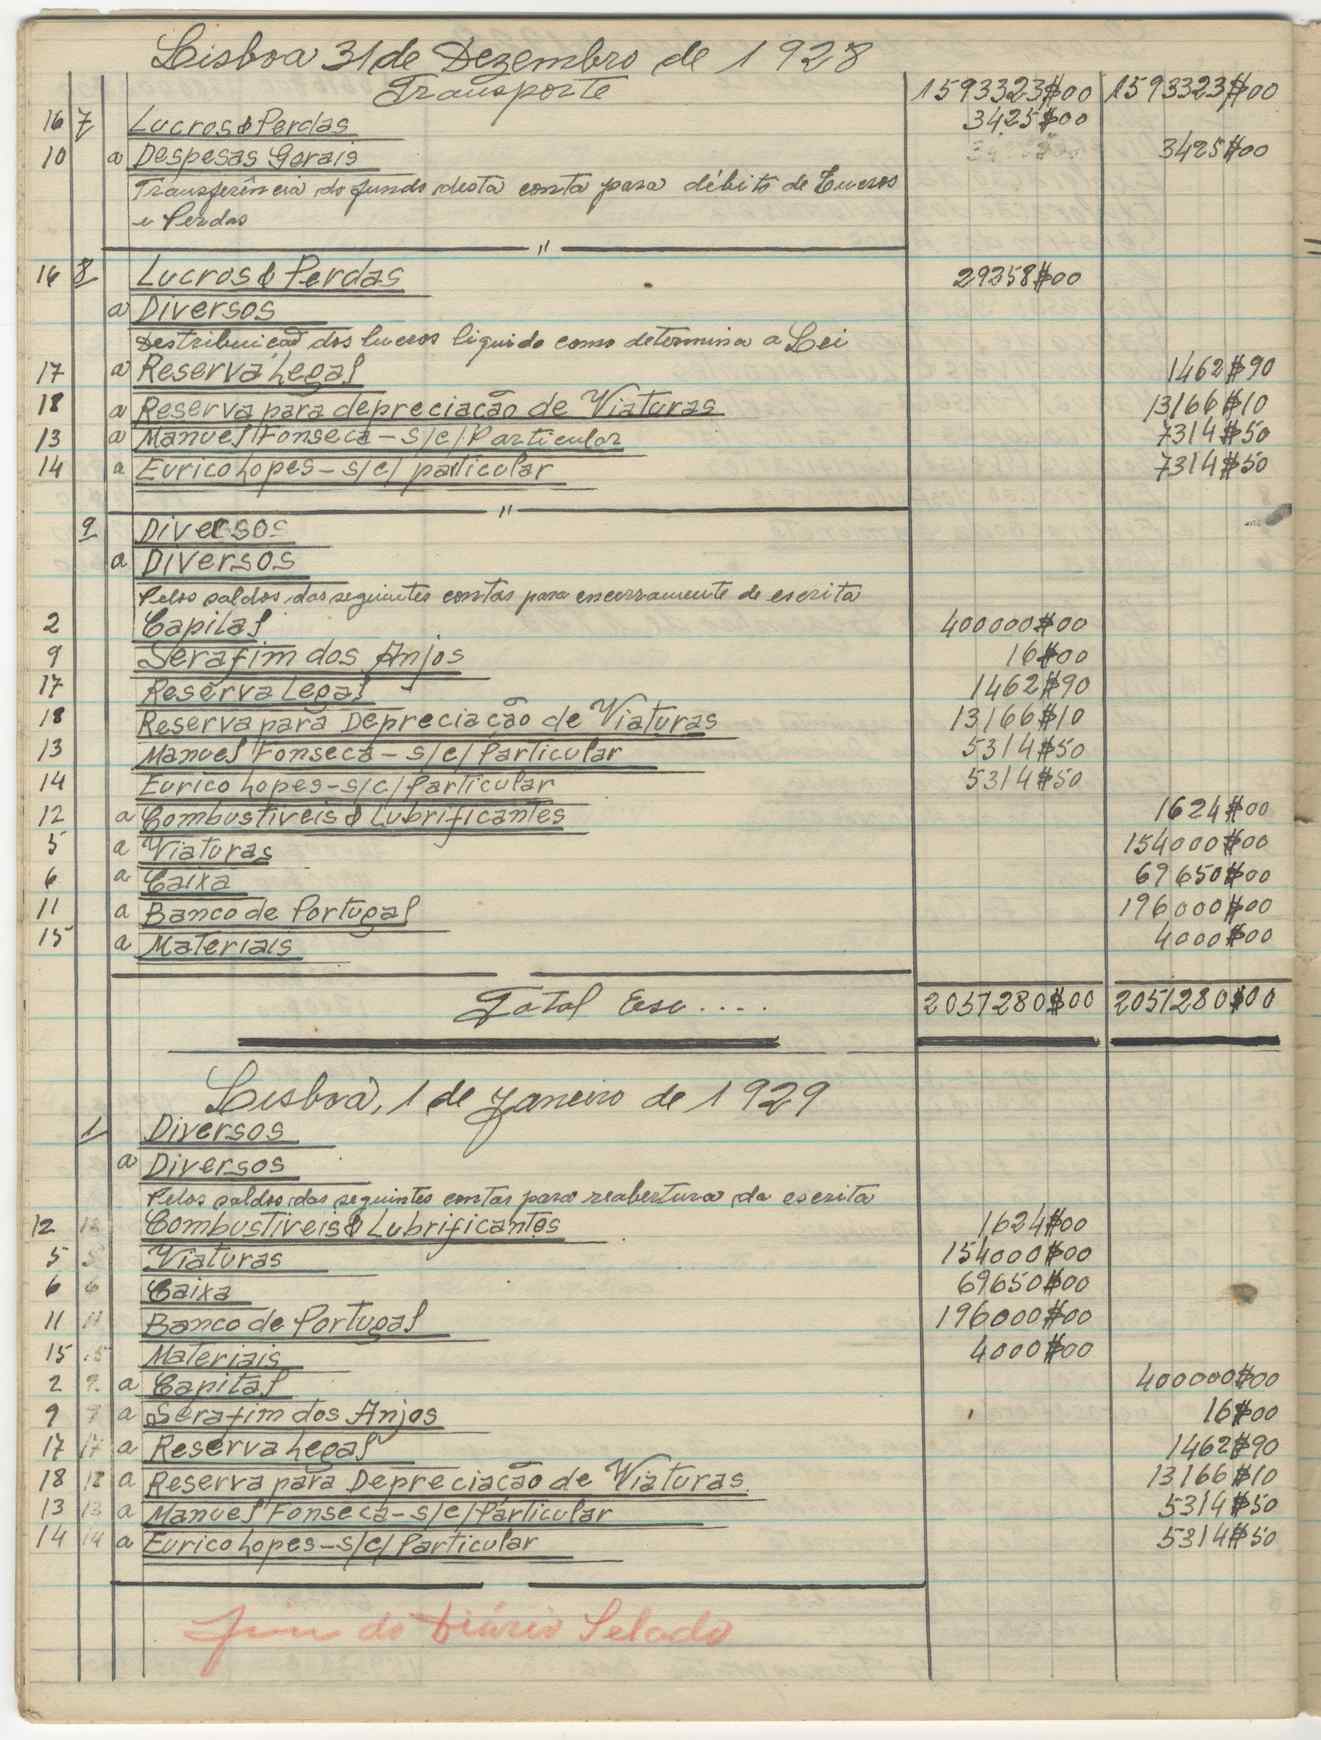 Lisboa 31 de Dezembro de 1928
Transporte 1593323$00 1593323$00
16 7 Lucros & Perdas 3425$00
10 a Despesas Gerais 3425$00
Transferência do fundo desta conta para débito de Lucros
e Perdas
"
16 8 Lucros & Perdas 29258$00
a Diversos
Destribuicão dos lucros liquido como determina a Lei
17 a Reserva Legal 1462$90
18 a Reserva para depreciacão de Viaturas 13166$10
13 a Manuel Fonseca - s/c/ Particular 7314$50
14 a Eurico Lopes - s/c/ particular 7314$50
"
9 Diversos
a Diversos
Pelos saldos das seguintes contas para encerramente de escrita
2 Capital 400000$00
9 Serafim dos Anjos 16$00
17 Reserva Legal 1462$90
18 Reserva para Depreciacão de Viaturas 13166$10
13 Manuel Fonseca - s/c/ Particular 5314$50
14 Eurico Lopes - s/c/ Particular 5314$50
12 a Combustiveis & Lubrificantes 1624$00
5 a Viaturas 154000$00
6 a Caixa 69650$00
11 a Banco de Portugal 196000$00
15 a Materiais 4000$00
Total Esc.... 2051280$00 2051280$00
Lisboa, 1 de Janeiro de 1929
1 Diversos
a Diversos
Pelos saldos das seguintes contas para reabertura da escrita
12 12 Combustiveis & Lubrificantes 1624$00
5 5 Viaturas 154000$00
6 6 Caixa 69650$00
11 11 Banco de Portugal 196000$00
15 15 Materiais 4000$00
2 2 a Capital 400000$00
9 9 a Serafim dos Anjos 16$00
17 17 a Reserva Legal 1462$90
18 18 a Reserva para Depreciacão de Viaturas 13166$10
13 13 a Manuel Fonseca - s/c/ Particular 5314$50
14 14 a Eurico Lopes - s/c/ Particular 5314$50
Fim do Diário Selado